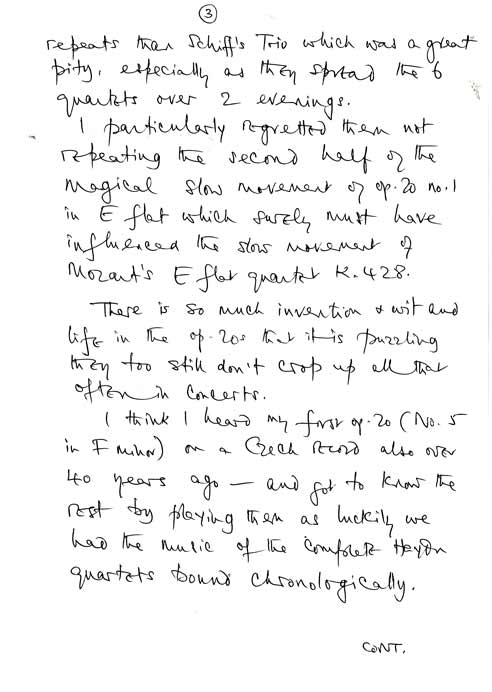 3
repeats than Schiff's Trio which was a great
pity, especially as they spread the 6
quartets over 2 evenings.
I particularly regretted them not
repeating the second half of the
magical slow movement of op.20 no.1
in E flat which surely must have
influenced the slow movement of
Mozart's E flat quartet K.428.
There is so much invention & wit and
life in the op.20s that it is puzzling
they too still don't crop up all that
often in concerts.
I think I heard my first op.20 (No.5
in F minor) on a Czech record also over
40 years ago — and got to know the
rest by playing them as luckily we
had the music of the complete Haydn
quartets bound chronologically.
CONT.